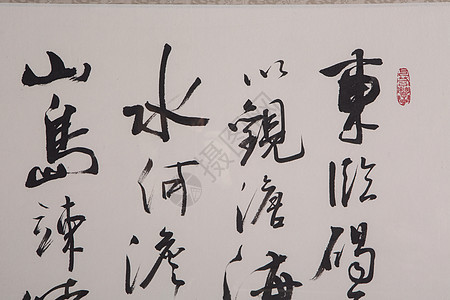 東臨碣
以觀滄海
水何澹
山島竦峙